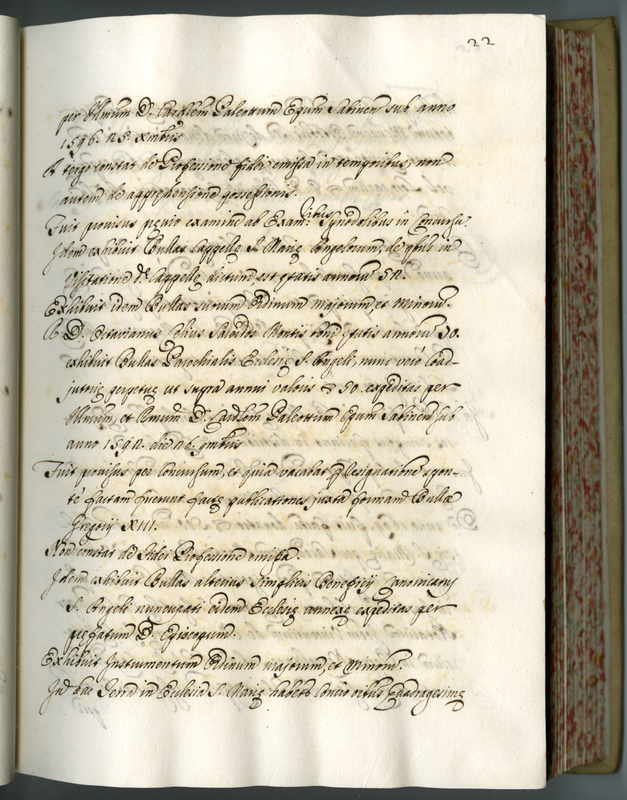 22
per Illmum D. Cardlem Paleottum Epum Sabinen sub anno
1596. 25. Xmbris
A tergo constat de Professione fidei emissa in temporibus, non
autem de apprehensione possessionis.
Fuit provisus previo examine ab Exam.ribus Synodalibus in Concursu.
Idem exhibuit Bullas Cappellę S. Marię Angelorum, de quib in
Visitatione dę Cappellę dictum est ętatis annorum 52.
Exhibuit idem Bullas suorum Ordinum majorum, et minorum.
D. Octavianus Sacerdos Montis ętatis annorum 30.
exhibuit Bullas Parochialis Ecclesię S. Angeli, nunc vero Coad-
jutrię perpetuę ut supra annui valoris 50. expeditas per
Illmum, et Rmum D. Cardlem Paleottum Epum Sabinen sub
anno 1592. die 26. 9mbris
Fuit provisus per concursum, et quia vacabat p Resignatione spon-
te factam fuerunt factę publicationes juxta formam Bullæ
Gregorij XIII.
Non constat de Fidei Professione emissa.
Idem exhibuit Bullas alterius simplicis Beneficij Canonicatus
S. Angeli nuncupati eidem Ecclesię annexę expeditas per
prefatum D. Episcopum.
Exhibuit Instrumentum Ordinum majorum, et minorum.
In hac Terra in Ecclesia S. Marię habetr Concio oibus Quadragesimę